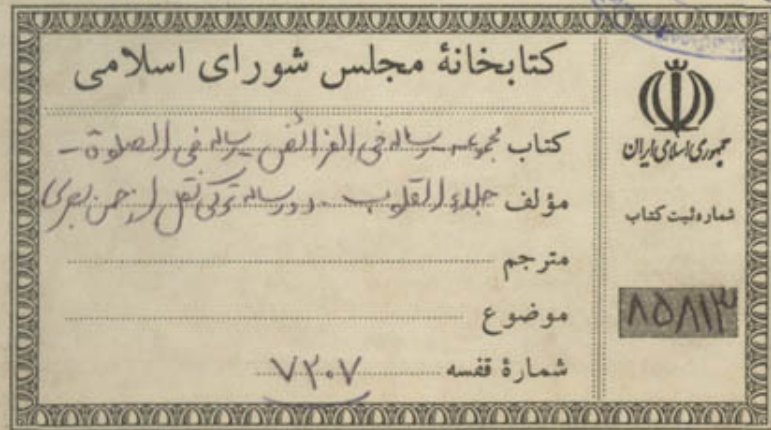 کتابخانهٔ مجلس شورای اسلامی
کتاب مجموعه رساله فی الفرائض رساله فی الصلوة -
مؤلف جلاء القلوب - دو رساله ترکی نقل از حسن بصری
مترجم
موضوع
شمارهٔ قفسه ۷۲۰۷
جمهوری اسلامی ایران
شماره ثبت کتاب
۸۵۸۱۳